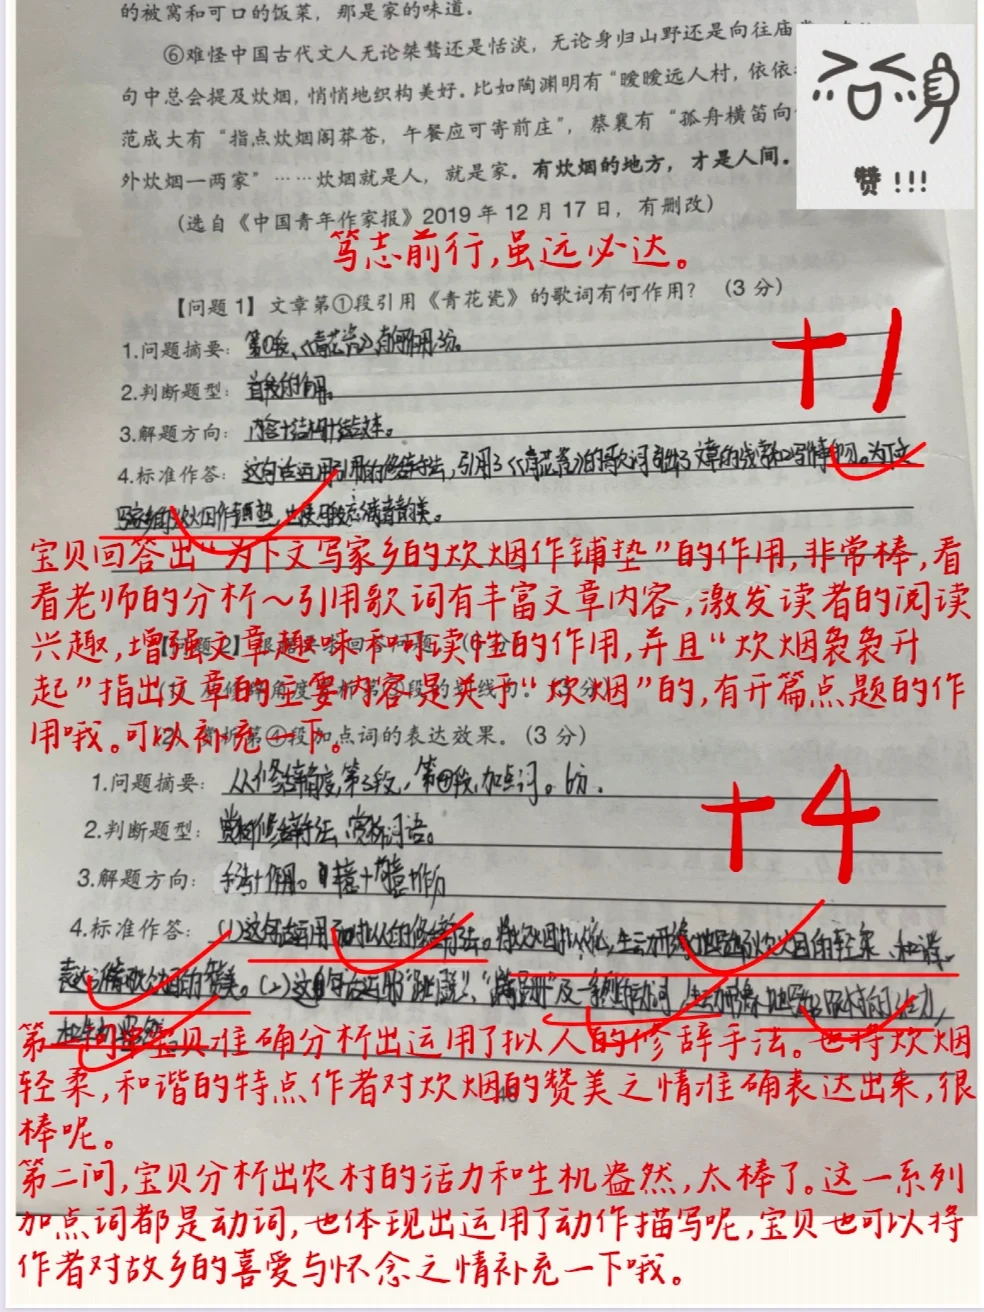 的被窝和可口的饭菜，那是家的味道。
⑥难怪中国古代文人无论桀骜还是恬淡，无论身归山野还是向往庙
句中总会提及炊烟，悄悄地织构美好。比如陶渊明有“暧暧远人村，依依
范成大有“指点炊烟隔莽苍，午餐应可寄前庄”，蔡襄有“孤舟横笛向
外炊烟一两家”……炊烟就是人，就是家。有炊烟的地方，才是人间。
赞!!!
(选自《中国青年作家报》2019年12月17日，有删改)
笃志前行,虽远必达。
【问题1】文章第①段引用《青花瓷》的歌词有何作用？（3分）
1.问题摘要：第①段、《青花瓷》有何作用3分。
+1
2.判断题型：首段的作用。
3.解题方向：内容+结构+结读者。
4.标准作答：这句话运用引用的修辞手法，引用了《青花瓷》的歌词引出了文章的线索和写作事物。为下文
写家乡的炊烟作铺垫,
宝贝回答出“为下文写家乡的炊烟作铺垫”的作用,非常棒,看
看老师的分析～引用歌词有丰富文章内容,激发读者的阅读
兴趣,增强文章趣味和可读性的作用,并且“炊烟袅袅升
起”指出文章的主要内容是关于“炊烟”的,有开篇点题的作
用哦。可以补充一下。
【问题2】根据要求回答问题。(6分
(2) 赏析第④段加点词的表达效果。(3分)
1.问题摘要：从修辞角度,第三段,第四段,加点词。6分.
+4
2.判断题型：赏析修辞手法、赏析词语。
3.解题方向：手法+作用。
4.标准作答：(1)这句话运用了拟人的修辞手法。将炊烟拟人化,生动形象地写出了炊烟的轻柔、和谐。
表达了作者对炊烟的赞美。(2)这句话运用“跳”、及一系列的动词,生动形象地写出了农村的活力,
和生机盎然。
第一问,宝贝准确分析出运用了拟人的修辞手法。也将炊烟
轻柔,和谐的特点作者对炊烟的赞美之情准确表达出来,很
棒呢。
第二问,宝贝分析出农村的活力和生机盎然,太棒了。这一系列
加点词都是动词,也体现出运用了动作描写呢,宝贝也可以将
作者对故乡的喜爱与怀念之情补充一下哦。